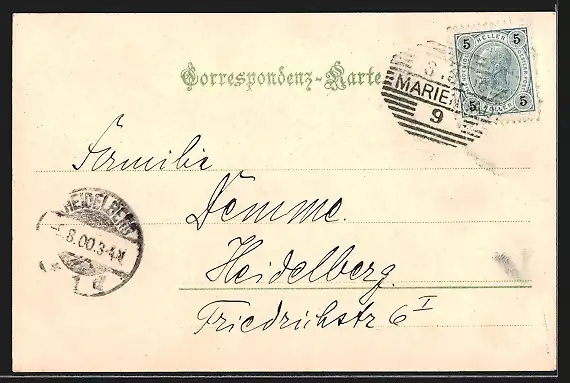 Correspondenz-Karte
5 HELLER 5
5 5
MARIEN
9
Familie
Demme.
Heidelberg.
Friedrichstr 6 I
HEIDELBERG
8.00.3-4N
* 1 d